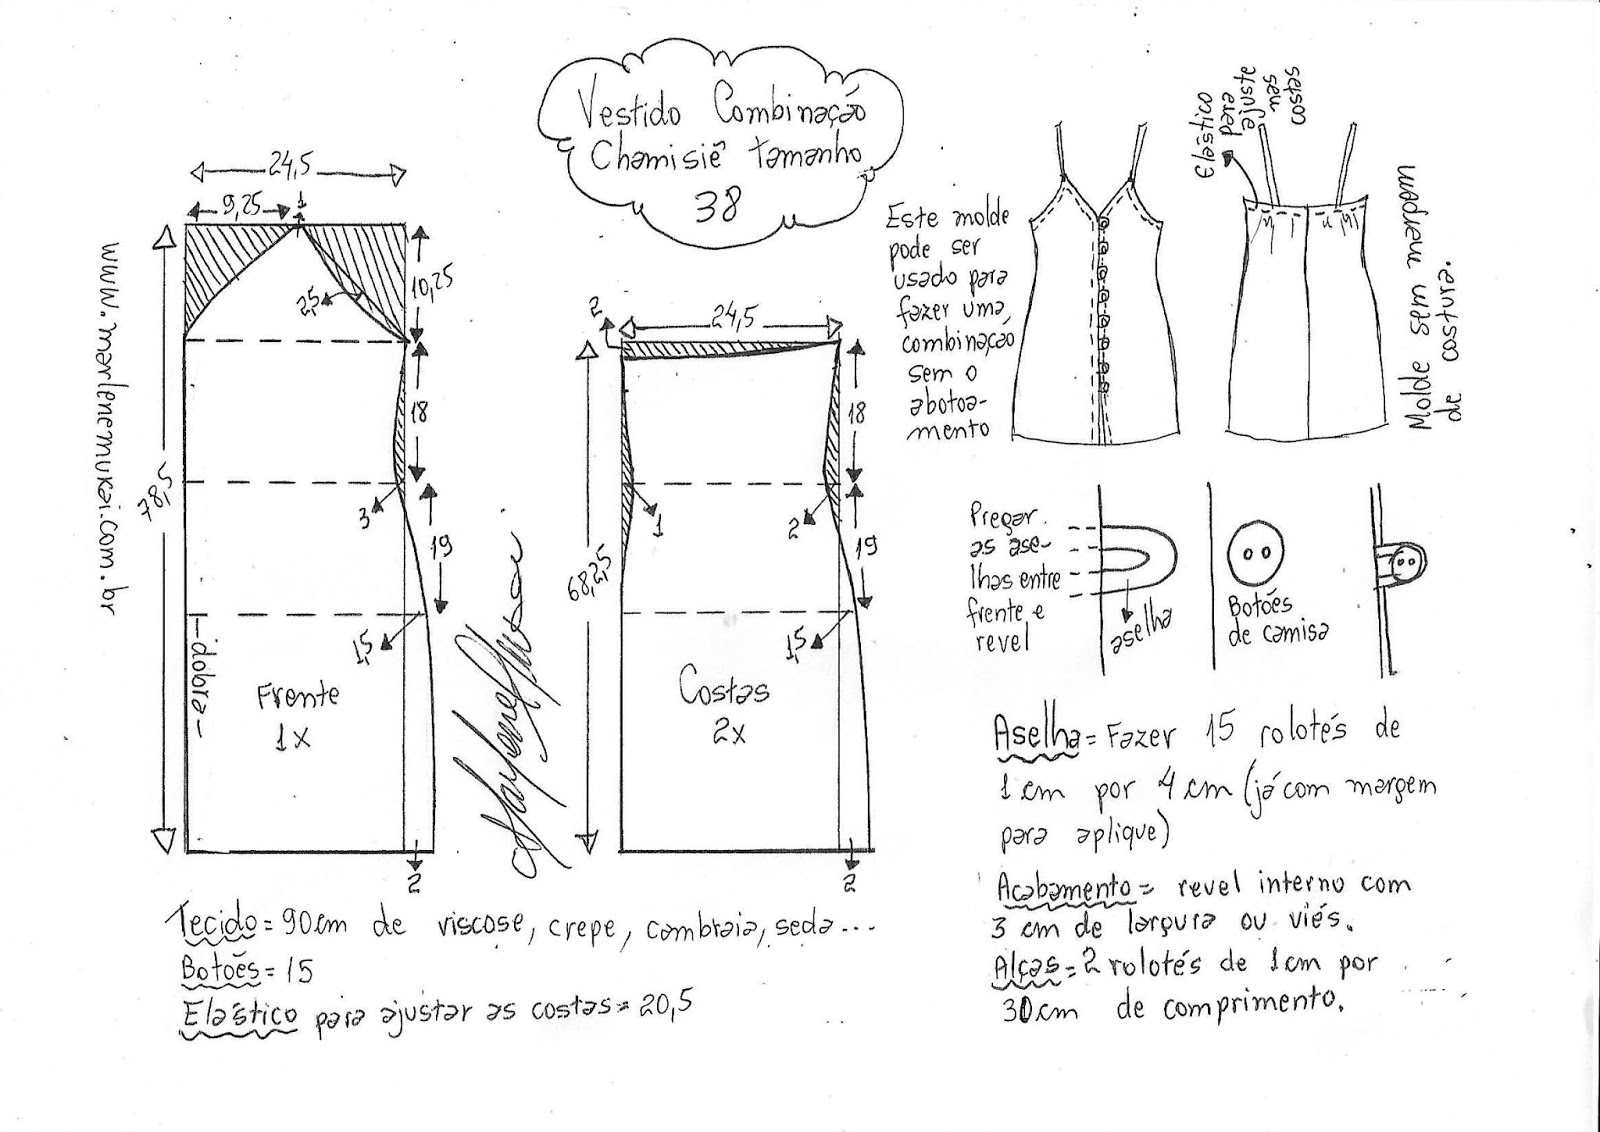 Vestido Combinação
Chamisiê tamanho
38
www.marlenemukai.com.br
24,5
9,25
1
10,25
2,5
18
78,5
3
19
1,5
dobra
Frente
1x
2
2
24,5
18
1
2
19
68,25
1,5
Costas
2x
2
Este molde
pode ser
usado para
fazer uma
combinação
sem o
abotoa-
mento
Elástico
para
ajuste
nas
costas
Molde sem margem
de costura.
Pregar
as ase-
lhas entre
frente e
revel
aselha
Botões
de camisa
Aselha = Fazer 15 rolotés de
1cm por 4cm (já com margem
para aplique)
Acabamento = revel interno com
3 cm de largura ou viés.
Alças = 2 rolotés de 1cm por
30cm de comprimento.
Tecido = 90cm de viscose, crepe, cambraia, seda...
Botões = 15
Elástico para ajustar as costas = 20,5